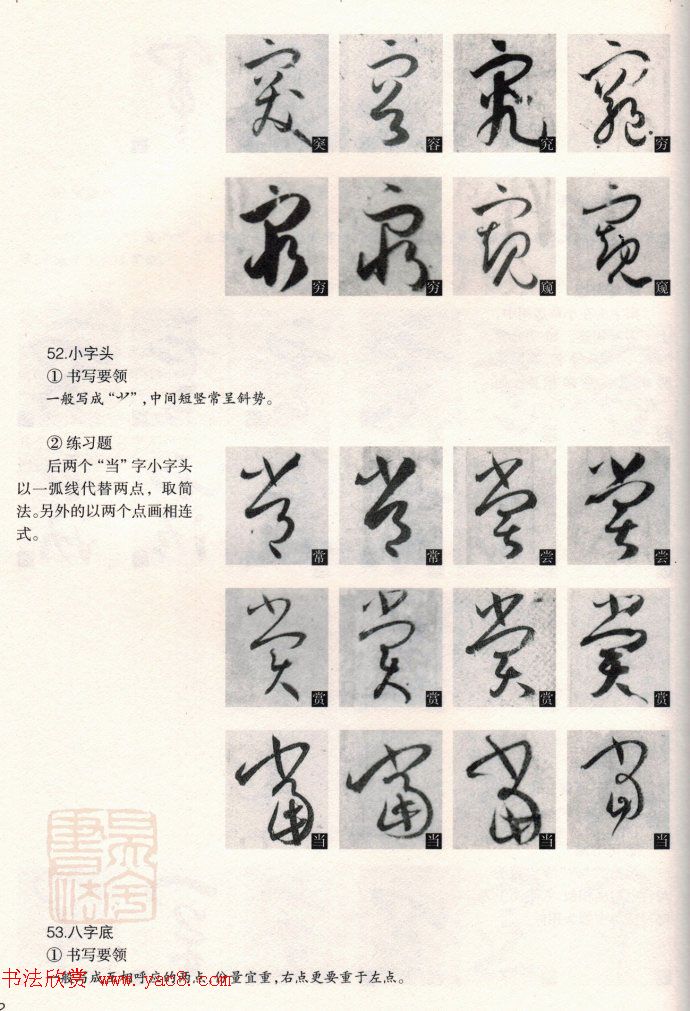 突 容 究 穷
穷 穷 窥 窥
52.小字头
① 书写要领
一般写成“⺌”,中间短竖常呈斜势。
② 练习题
后两个“当”字小字头
以一弧线代替两点，取简
法。另外的以两个点画相连
式。
常 常 尝 尝
赏 赏 赏 赏
当 当 当 当
53.八字底
① 书写要领
一般写成互相呼应的两点,分量宜重,右点更要重于左点。
书法欣赏 www.yac8.com